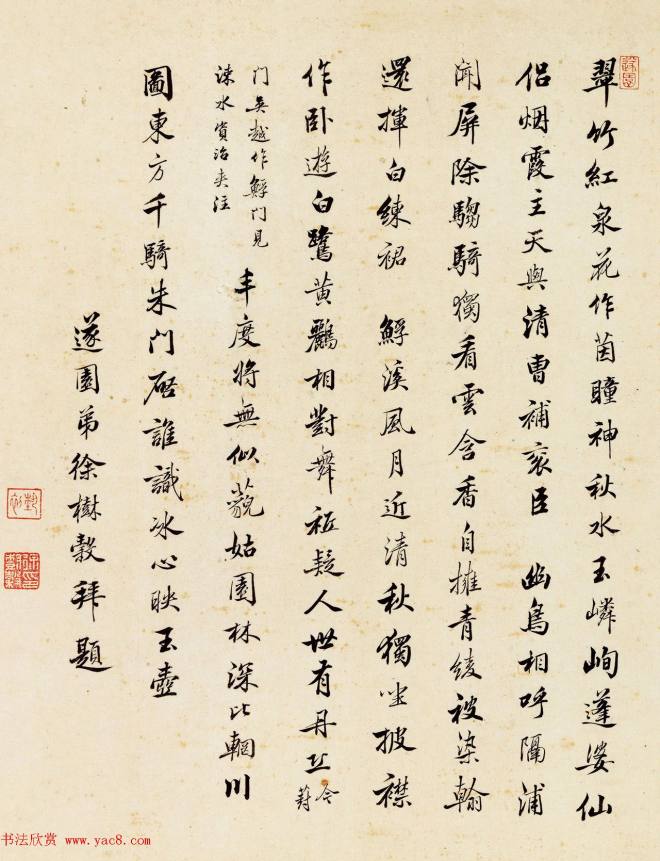 翠竹紅泉花作茵瞳神秋水玉嶙峋蓬婆仙
侶烟霞主天與清曹補衮臣　幽鳥相呼隔浦
聞屏除騶騎獨看雲含香自擁青綾被染翰
還揮白練裙　鰀溪風月近清秋獨坐披襟
作卧遊白鷺黄鸝相對舞祗疑人世有丹丘
門吴越作門見
涑水資治夾注
丰度將無似藐姑園林深比輞川
圖東方千騎朱門啓誰識冰心映玉壺
遂園弟徐樹榖拜題
书法欣赏 www.yac8.com